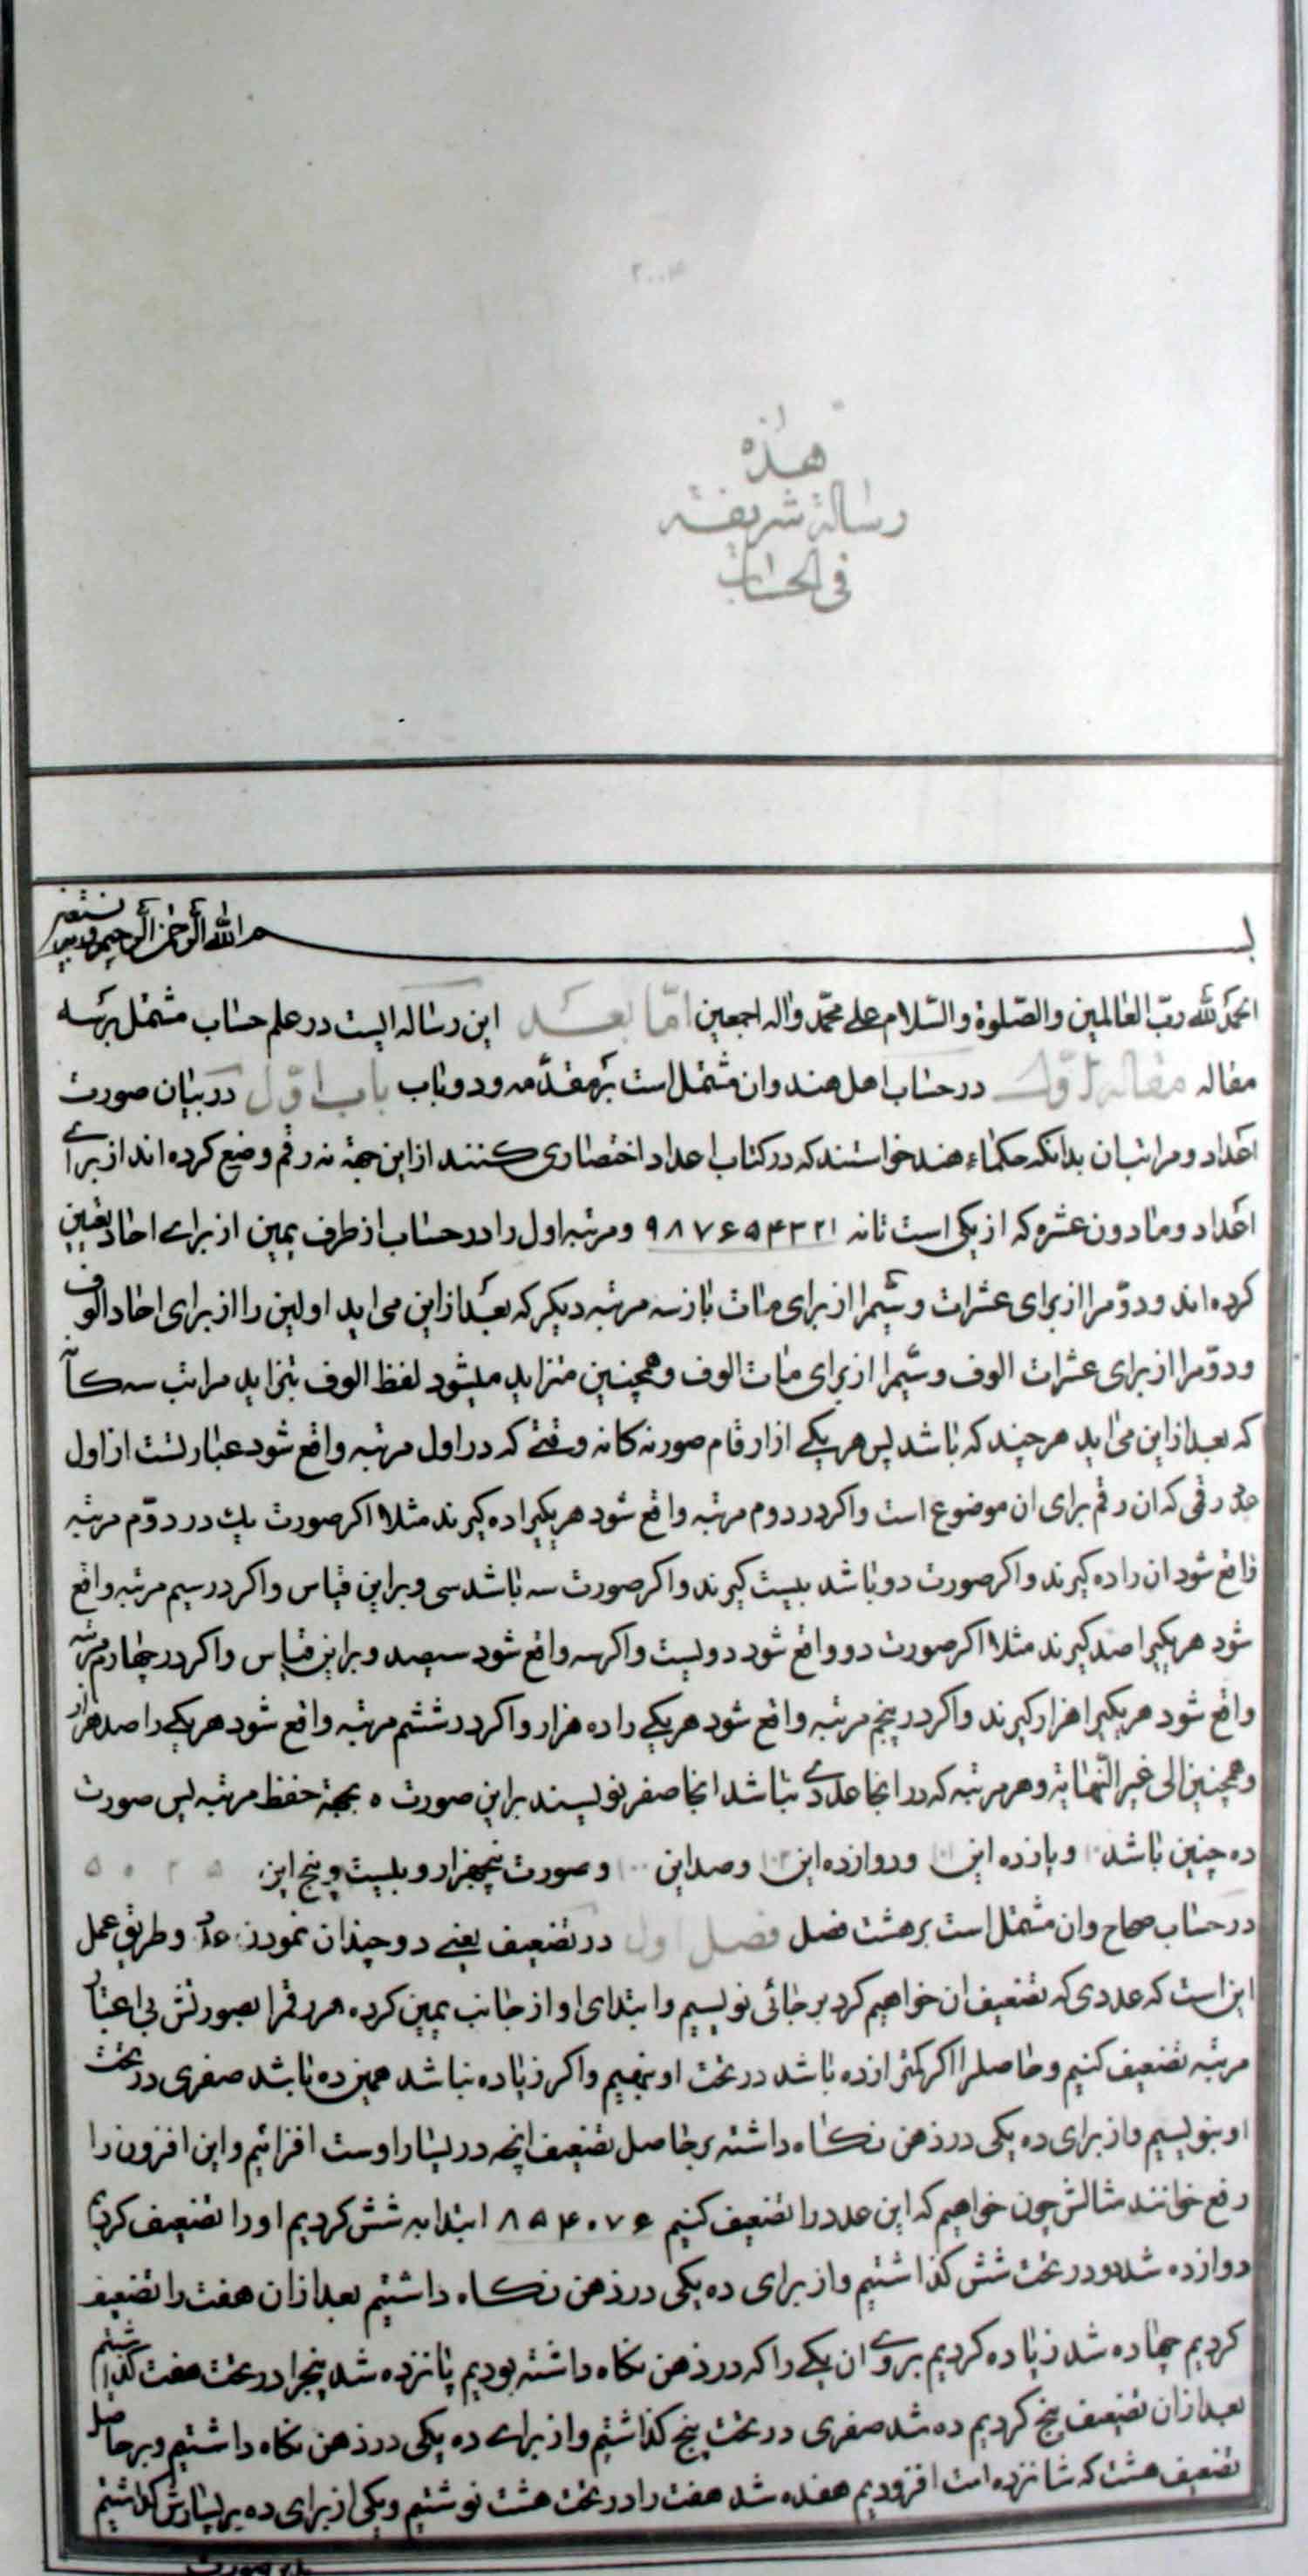 ٢٠٠۴
هذه
رسالة شريفة
فى الحساب
بسم الله الرحمن الرحيم وبه نستعين
الحمد لله رب العالمين والصلوة والسلام على محمد واله اجمعين اما بعد اين رساله ايست در علم حساب مشتمل بر سه
مقاله مقاله اول در حساب اهل هند وان مشتمل است بر مقدمه ودو باب باب اول در بيان صورت
اعداد ومراتب ان بدانكه حكماء هند خواستند كه در كتاب اعداد اختصارى كنند از اين جهة نه رقم وضع كرده اند از براى
اعداد ومادون عشره كه از يكى است تا نه ٩٨٧۶۵۴٣٢١ ومرتبه اول را در حساب از طرف يمين از براى احاد تعيين
كرده اند ودوم را از براى عشرات وسيم را از براى مات باز سه مرتبه ديكر كه بعد از اين مى ايد اولين را از براى احاد الوف
ودوم را از براى عشرات الوف وسيم را از براى مات الوف وهمچنين متزايد ميشود لفظ الوف بتزايد مراتب سه كانه
كه بعد از اين مى ايد هر چند كه باشد پس هر يكى از ارقام صور نه كانه وقتى كه در اول مرتبه واقع شود عبارتست از اول
عدد رقمى كه ان رقم براى ان موضوع است واكر در دوم مرتبه واقع شود هر يكيرا ده كيرند مثلا اكر صورت يك در دوم مرتبه
واقع شود ان را ده كيرند واكر صورت دو باشد بيست كيرند واكر صورت سه باشد سى وبر اين قياس واكر در سيم مرتبه واقع
شود هر يكيرا صد كيرند مثلا اكر صورت دو واقع شود دويست واكر سه واقع شود سيصد وبر اين قياس واكر در چهارم مرتبه
واقع شود هر يكيرا هزار كيرند واكر در پنجم مرتبه واقع شود هر يكى را ده هزار واكر در ششم مرتبه واقع شود هر يكى را صد هزار
وهمچنين الى غير النهاية وهر مرتبه كه در انجا عددى نباشد انجا صفر نويسند بر اين صورت ه بجهة حفظ مرتبه پس صورت
ده چنين باشد ١٠ ويازده اين ١١ ودوازده اين ١٢ وصد اين ١٠٠ وصورت پنجهزار وبيست وپنج اين ۵٠٢۵
در حساب صحاح وان مشتمل است بر هشت فصل فصل اول در تضعيف يعنى دو چندان نمودن عدد وطريق عمل
اين است كه عددى كه تضعيف ان خواهيم كرد بر جائى نويسيم وابتداى او از جانب يمين كرده هر رقمرا بصورتش بى اعتبار
مرتبه تضعيف كنيم وحاصلرا اكر كمتر از ده باشد در تحت او بنهيم واكر زياده نباشد همين ده باشد صفرى در تحت
او بنويسيم واز براى ده يكى در ذهن نكاه داشته بر حاصل تضعيف انچه در يسار اوست افزائيم واين افزون را
رفع خوانند مثالش چون خواهيم كه اين عدد را تضعيف كنيم ٨۵۴٠٧۶ ابتدا به شش كرديم او را تضعيف كرديم
دوازده شد دو در تحت شش كذاشتيم واز براى ده يكى در ذهن نكاه داشتيم بعد از ان هفت را تضعيف
كرديم چهارده شد زياده كرديم بروى ان يكى را كه در ذهن نكاه داشته بوديم پانزده شد پنجرا در تحت هفت كذاشتيم
بعد از ان تضعيف پنج كرديم ده شد صفرى در تحت پنج كذاشتيم واز براى ده يكى در ذهن نكاه داشتيم وبر حاصل
تضعيف هشت كه شانزده است افزوديم هفده شد هفت را در تحت هشت نوشتيم ويكى از براى ده بر يسارش كذاشتيم
بدين صورت